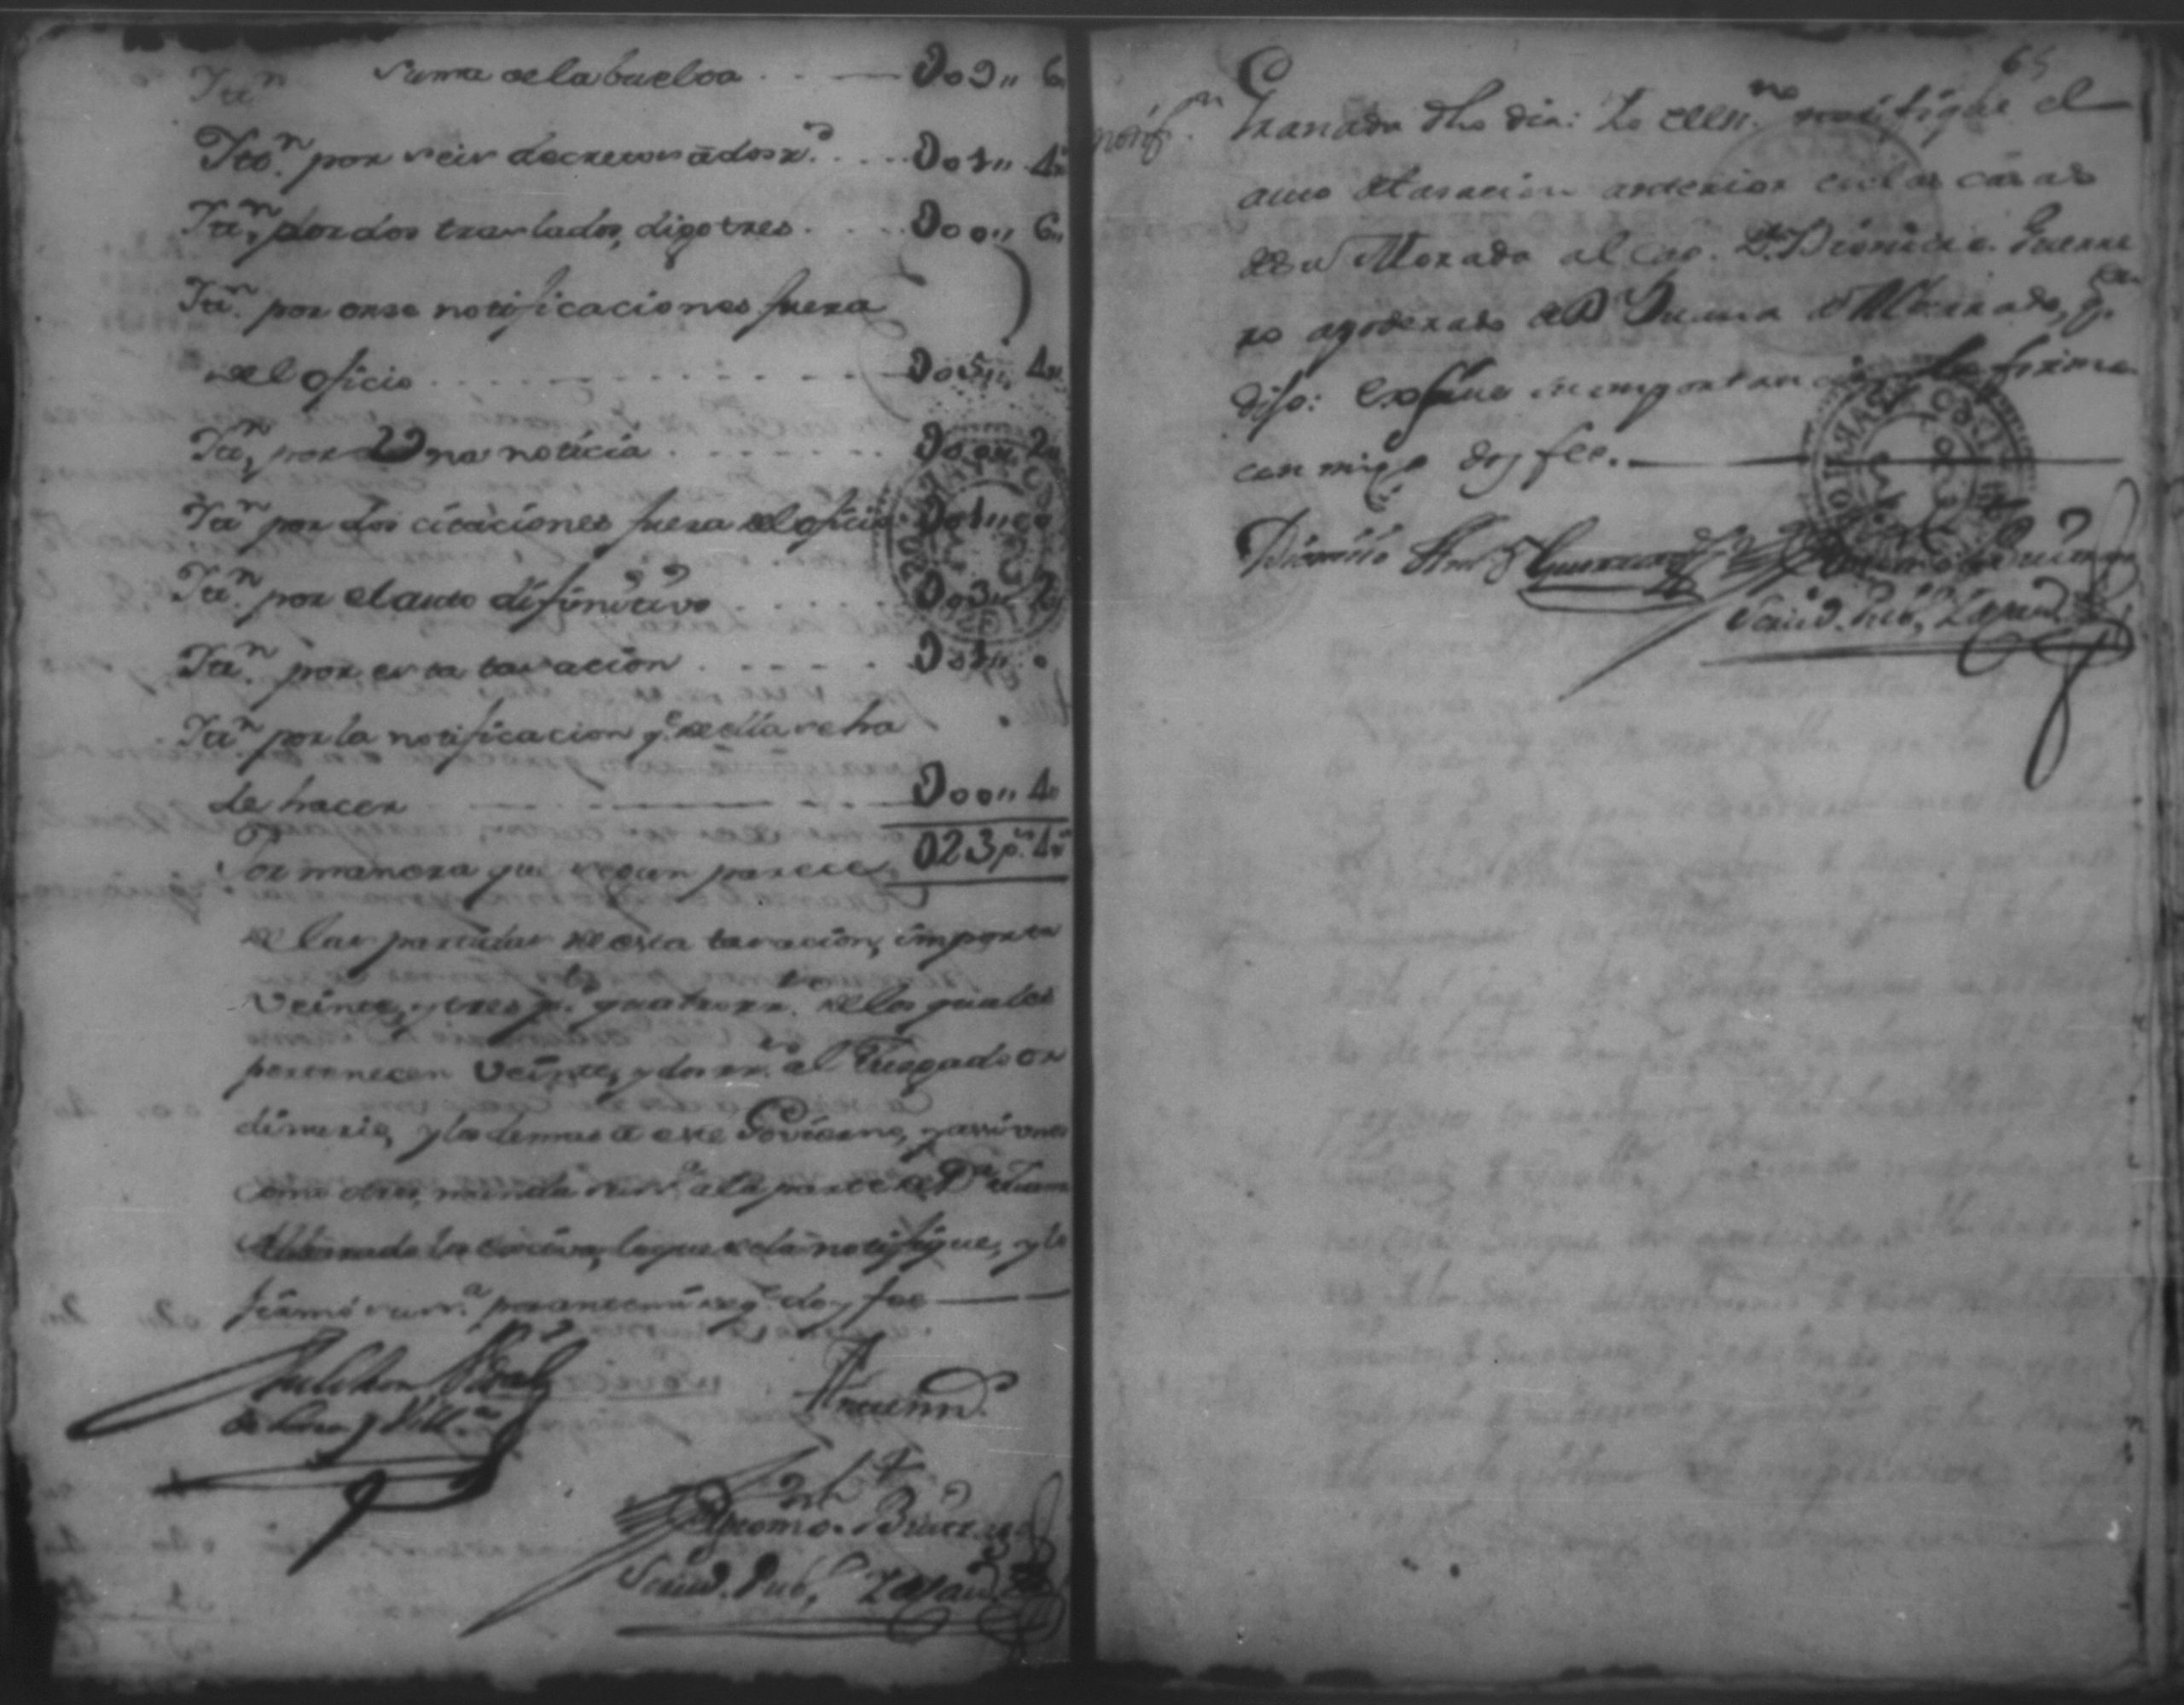 Suma de la buelta . . — 009,, 6
Itt.n por seis decretos ādos r.s . . . . 001,, 4
Itt.n por dos traslados, digo tres . . . . 000,, 6
Itt.n por onse notificaciones fuera
del oficio . . . . . . . . . . 005,, 4
Itt.n por Una noticia . . . . . . . 000,, 2
Itt.n por dos citaciones fuera del oficio 001,, 0
Itt.n por el auto difinitivo . . . . . 003,, 2
Itt.n por esta tasacion . . . . . 001,, 0
Itt.n por la notificacion q.e de ella se ha
de hacer — — — 000,, 4
023 p.s 4 r.s
Por manera que segun parece
de las partidas de esta tasacion, importa
Veinte, y tres p.s quatro rr.s de los quales
pertenecen Veinte, y dos rr.s al Jusgado or
dinario, y los demas a este Govierno, y assi unos
como otros, manda su ss.a a la parte de D.a Juana
Albarado los exiva, lo que se le notifique, y lo
firmó su ss.a por ante mi de q.e doy fee —
Melchor Vidal
de Lorca y Vill.a
Ante mi
Scriv.o Pub.co
65
Notif.n
Granada dho dia: Yo el ess.no notifiqué el
auto de tasacion anterior en las casas
de su Morada al Cap. D.n Dionicio Guerre
ro apoderado de D.a Juana de Albarado, q.n
dijo: exsiva su importancia, y lo firma
conmigo doy fee. —
Dionicio Guerrero
Scriv.o Pub.co